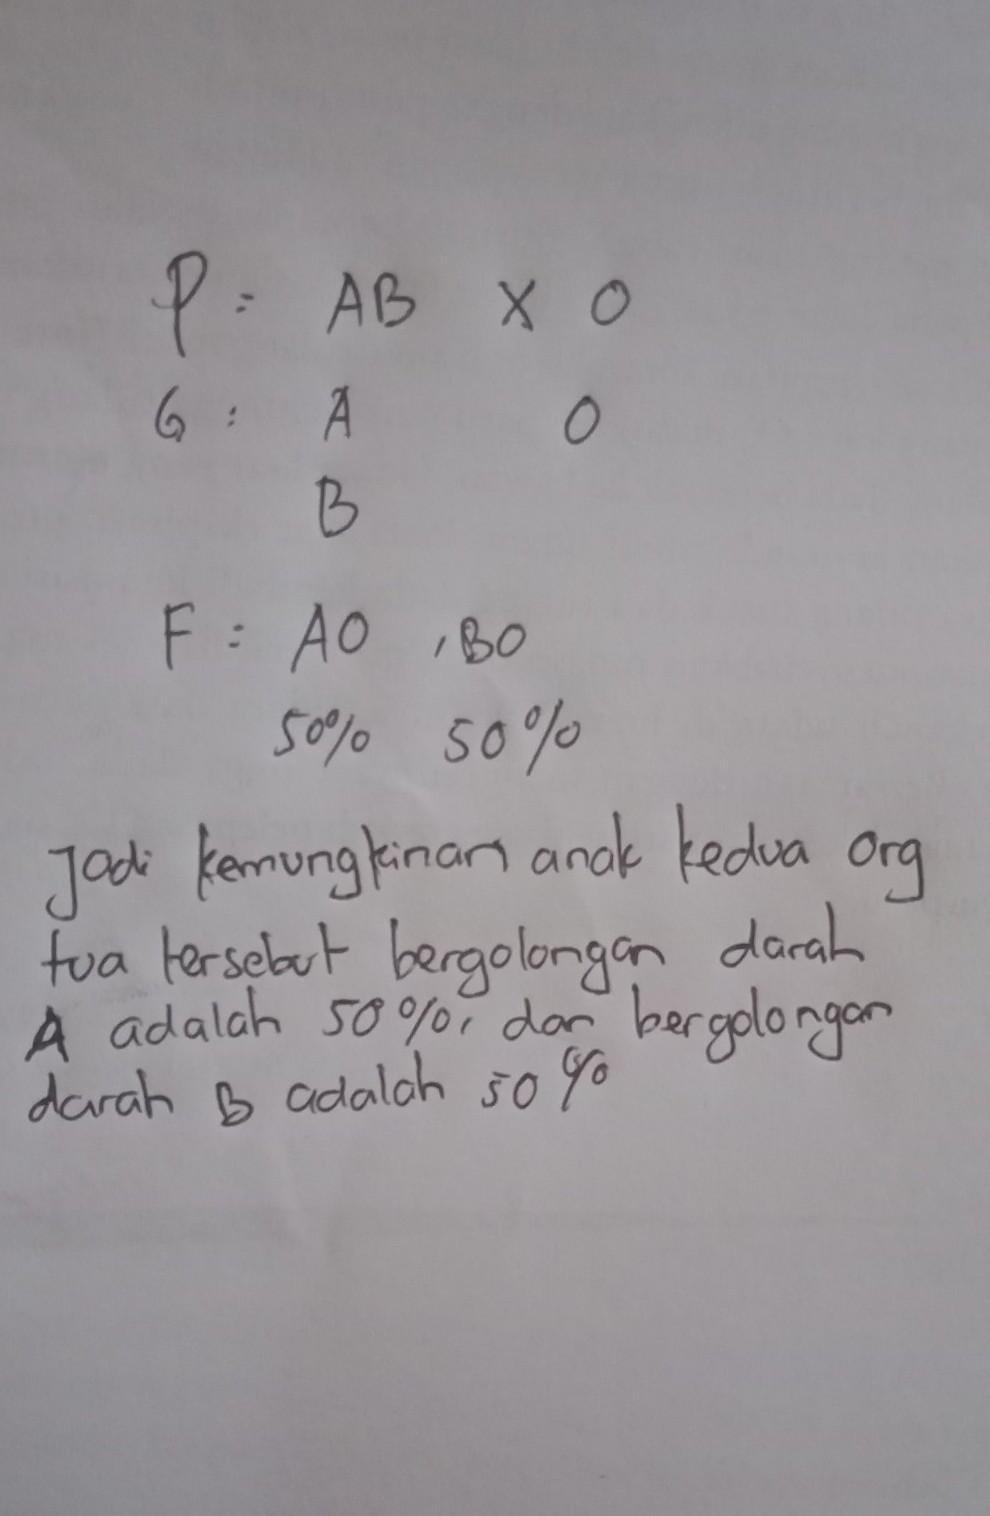 P = AB X O
G : A O
B
F = AO , BO
50% 50%
Jadi kemungkinan anak kedua org
tua tersebut bergolongan darah
A adalah 50%, dan bergolongan
darah B adalah 50%